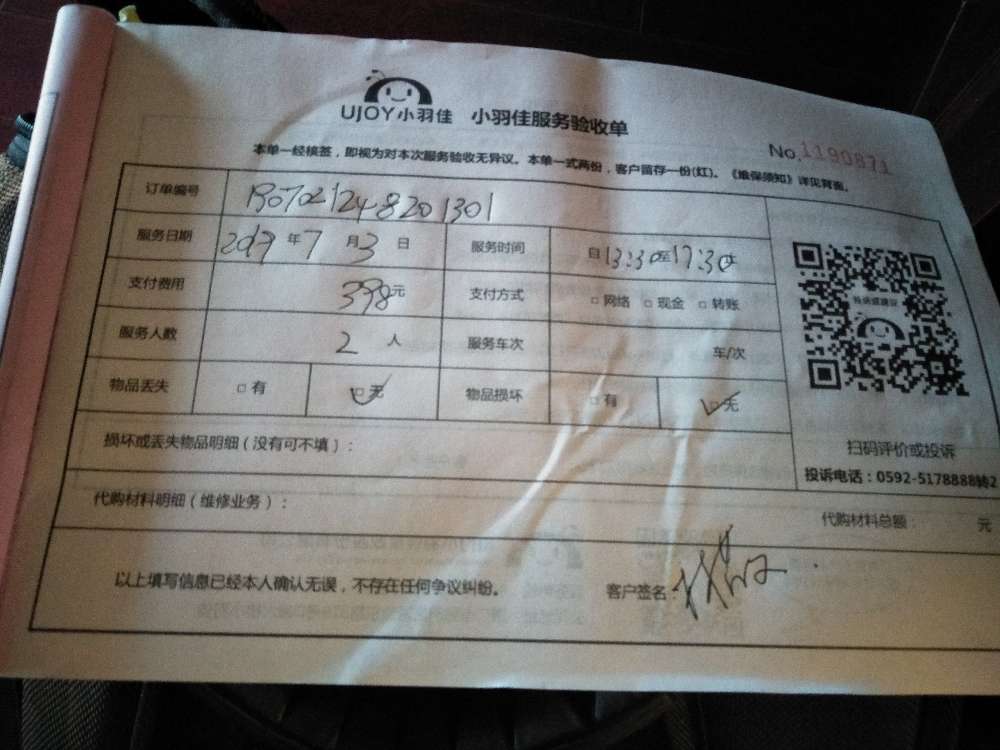 UJOY小羽佳 小羽佳服务验收单
No.1190871
本单一经核签，即视为对本次服务验收无异议。本单一式两份，客户留存一份(红)。《维保须知》详见背面。
订单编号 1907021248201301
服务日期 2019年7月3日 服务时间 自13:30至17:30止
支付费用 398元 支付方式 □网络 □现金 □转账
服务人数 2人 服务车次 车/次
物品丢失 □有 □无 物品损坏 □有 □无
损坏或丢失物品明细（没有可不填）：
扫码评价或投诉
投诉电话：0592-5178888转2
代购材料明细（维修业务）：
代购材料总额： 元
以上填写信息已经本人确认无误，不存在任何争议纠纷。 客户签名：